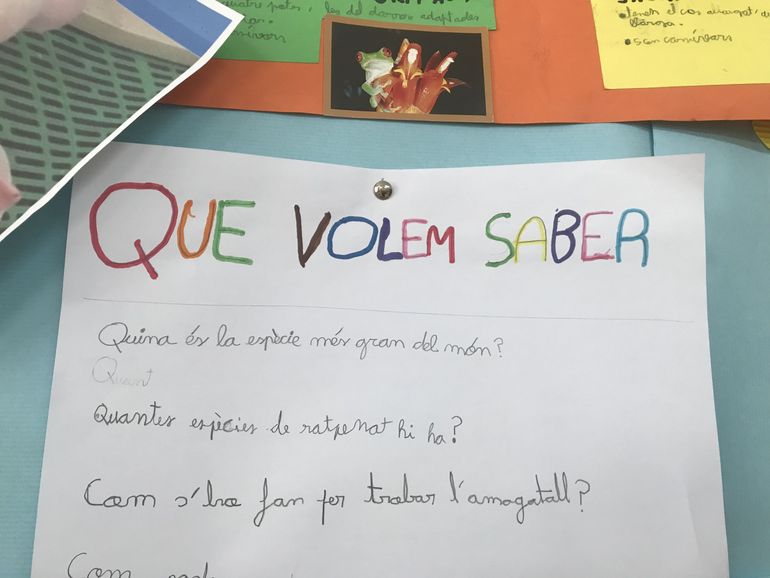 quatre potes, les del darrera adaptades
tenen el cos allargat
són carnívors
QUE VOLEM SABER
Quina és la espècie més gran del món?
Quant
Quantes espècies de ratpenat hi ha?
Com s'ho fan per trobar l'amagatall?
Com